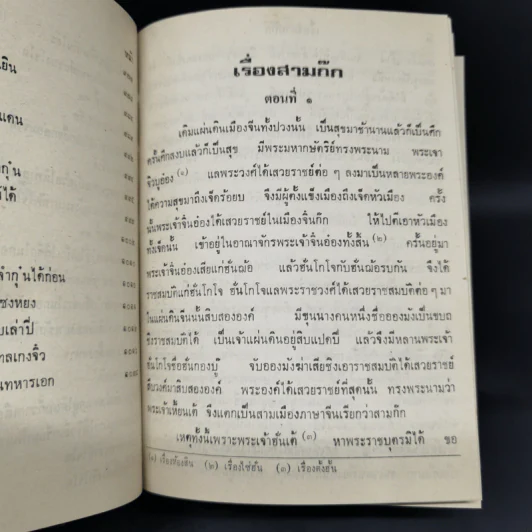 เยิน
แดน
ากุ๋น
ได้
จำกุ๋นได้ก่อน
ซงหยง
บเล่าปี่
าลเกงจิ๋ว
นทหารเอก
หน้า
เรื่องสามก๊ก
ตอนที่ ๑
เดิมแผ่นดินเมืองจีนทั้งปวงนั้น เป็นสุขมาช้านานแล้วก็เป็นศึก
ครั้นศึกสงบแล้วก็เป็นสุข มีพระมหากษัตริย์ทรงพระนาม พระเจ้า
จิวบุอ๋อง (๑) แลพระวงศ์ได้เสวยราชย์ต่อ ๆ ลงมาเป็นหลายพระองค์
ได้ความสุขมาถึงเจ็ดร้อยปี จึงมีผู้ตั้งแข็งเมืองถึงเจ็ดหัวเมือง ครั้ง
นั้นพระเจ้าจิ๋นอ๋องได้เสวยราชย์ในเมืองจิ้นก๊ก ให้ไปตีเอาหัวเมือง
ทั้งเจ็ดนั้น เข้าอยู่ในอาณาจักรพระเจ้าจิ๋นอ๋องทั้งสิ้น (๒) ครั้นอยู่มา
พระเจ้าจิ๋นอ๋องเสียแก่ฮั่นฌ้อ แล้วฮั่นโกโจกับฮั่นฌ้อรบกัน จึงได้
ราชสมบัติแก่ฮั่นโกโจ ฮั่นโกโจแลพระราชวงศ์ได้เสวยราชสมบัติต่อ ๆ มา
ในแผ่นดินจีนนั้นสิบสององค์ มีขุนนางคนหนึ่งชื่ออองมังเป็นขบถ
ชิงราชสมบัติได้ เป็นเจ้าแผ่นดินอยู่สิบแปดปี แล้วจึงมีหลานพระเจ้า
ฮั่นโกโจชื่อฮั่นกองบู๊ จับอองมังฆ่าเสียชิงเอาราชสมบัติได้เสวยราชย์
สืบวงศ์มาสิบสององค์ พระองค์ได้เสวยราชย์ที่สุดนั้น ทรงพระนามว่า
พระเจ้าเหี้ยนเต้ จึงแตกเป็นสามเมืองภาษาจีนเรียกว่าสามก๊ก
เหตุทั้งนี้เพราะพระเจ้าฮั่นเต้ (๓) หาพระราชบุตรมิได้ ขอ
(๑) เรื่องห้องสิน (๒) เรื่องไซ่ฮั่น (๓) เรื่องตั้งฮั่น